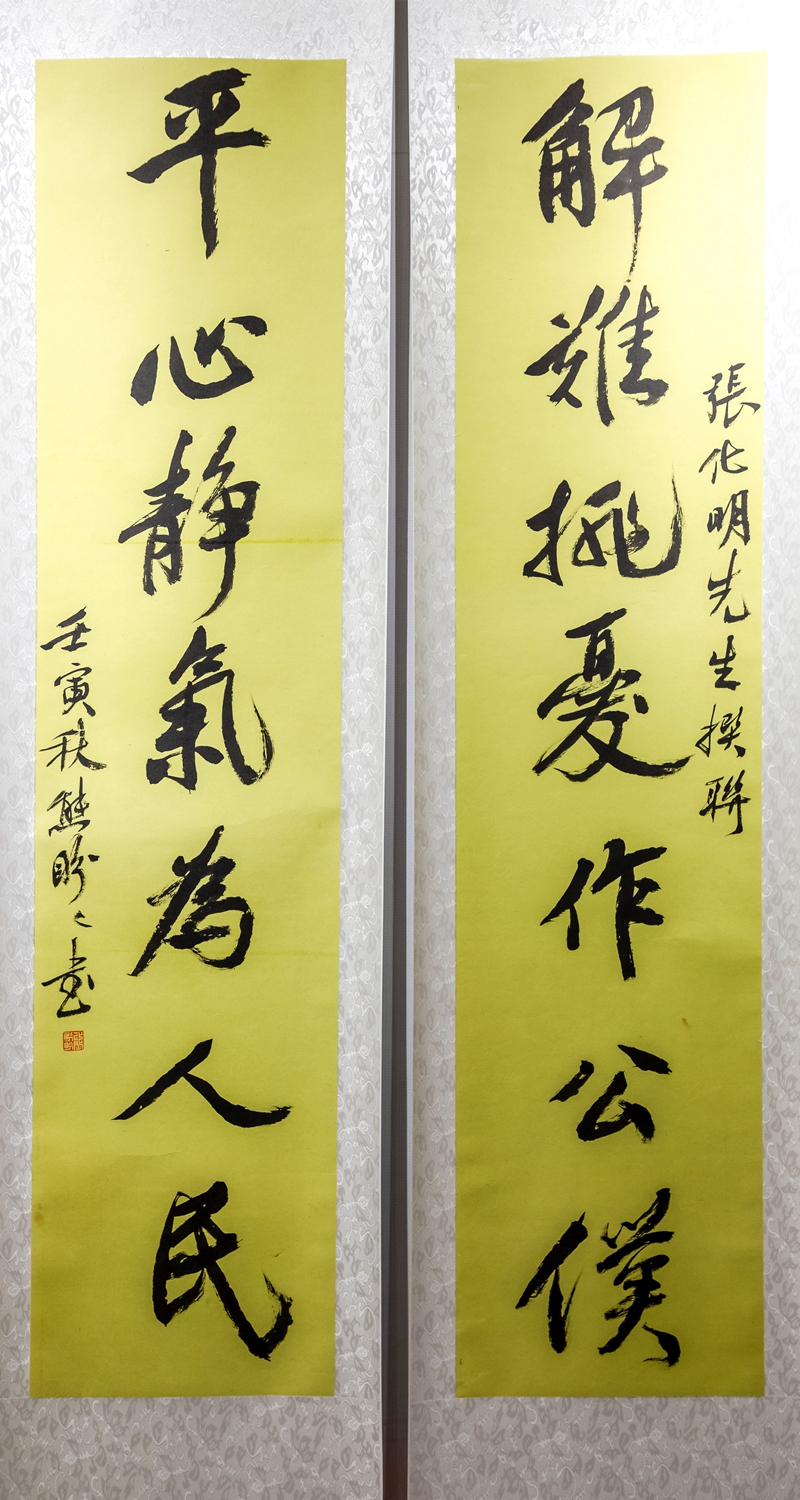 張化明先生撰聯
解難挑憂作公僕
平心静氣為人民
壬寅秋熊盼々書